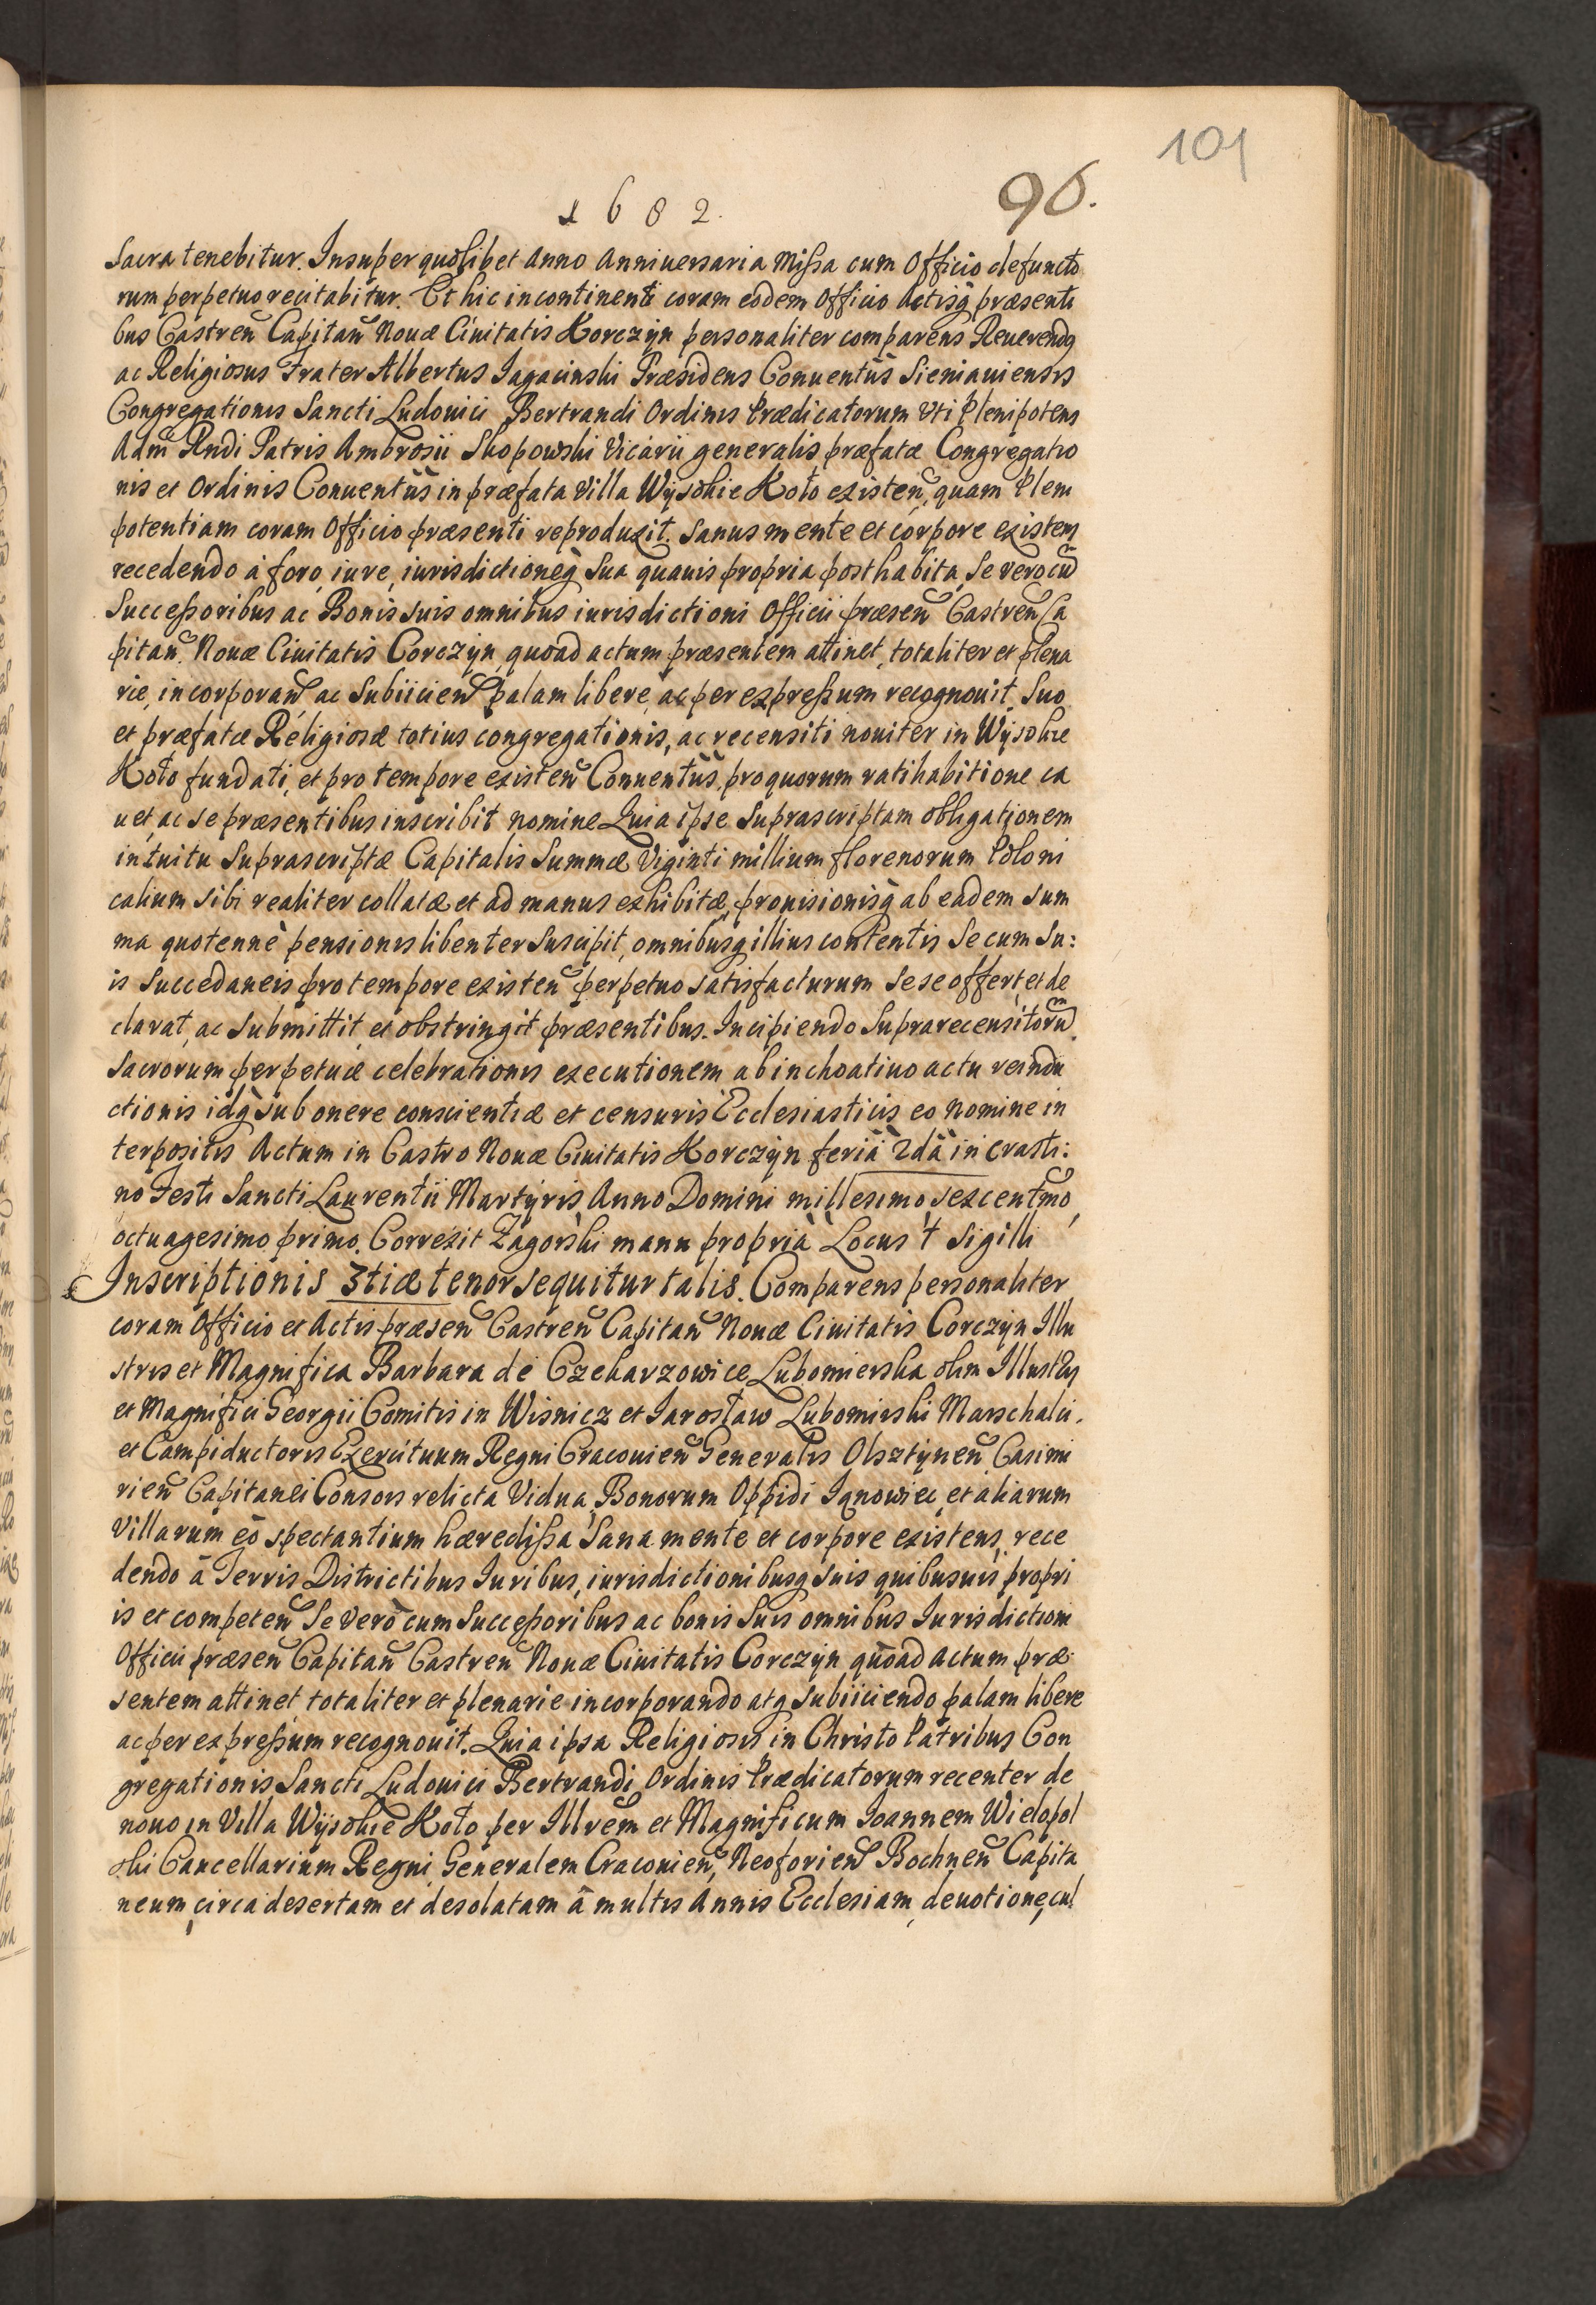 101
1682.
96.
Sacra tenebitur. Insuper quolibet Anno Anniuersaria Missa cum Officio defuncto
rum perpetuo recitabitur. Et hic incontinenti coram eodem Officio Actisq́ præsenti
bus Castren̄ Capitan̄ Nouæ Ciuitatis Korczÿn personaliter comparens Reuerendq
ac Religiosus Frater Albertus Jagacinski Præsidens Conuentûs Sieniauiensis
Congregationis Sancti Ludouici Bertrandi Ordinis Prædicatorum Vti Plenipotens
Adm̄ Rndi Patris Ambrosii Skopowski Vicarii generalis præfatæ Congregatio
nis et Ordinis Conuentûs in præfata Villa Wÿsokie Koło existen̄, quam Pleni
potentiam coram Officio præsenti reproduxit. Sanus mente et corpore existens
recedendo à foro, iure, iurisdictioneq́ Sua quauis propria posthabita, Se vero cū
Successoribus ac Bonis suis omnibus iurisdictioni Officii præsen̄ Castren̄ Ca
pitan̄. Nouæ Ciuitatis Corczÿn, quoad actum præsentem attinet, totaliter et plena
rie, incorporan̄ ac Subiicien̄ palam libere, ac per expressum recognouit. Suo
et præfatæ Religiosæ totius congregationis, ac recensiti nouiter in Wÿsokie
Koło fundati, et pro tempore existen̄ Conuentûs, pro quorum ratihabitione ca
uet, ac se præsentibus inscribit nomine Quia ipse Suprascriptam obligationem
intuitu Suprascriptæ Capitalis Summæ Viginti millium florenorum Poloni
calium sibi realiter collatæ et ad manus exhibitæ, prouisionisq́ ab eadem sum
ma quotennè pensionis libenter Suscipit, omnibusq illius contentis Se cum Su:
is Succedaneis pro tempore existen̄ perpetuo satisfacturum Sese offert et de
clarat, ac submittit, et obstringit præsentibus. Incipiendo Suprarecensitorū
Sacrorum perpetuæ celebrationis executionem ab inchoatiuo actu reindu
ctionis idq́ sub onere conscientiæ et censuris Ecclesiasticis eo nomine in
terpositis Actum in Castro Nouæ Ciuitatis Korczÿn feriâ 2dâ in crasti:
no Festi Sancti Laurentii Martÿris Anno Domini millesimo sexcentm̄o
octuagesimo primo. Correxit Zagórski manu propriâ Locus † Sigilli
Inscriptionis 3tiæ tenor sequitur talis. Comparens personaliter
coram Officio et Actis præsen̄ Castren̄ Capitan̄ Nouæ Ciuitatis Corczÿn Illu
stris et Magnifica Barbara de Czekarzowice Lubomierska olim Illustris
et Magnifici Georgii Comitis in Wisnicz et Jarosław Lubomirski Marschalci,
et Campiductoris Exercituum Regni Cracouien̄ Generalis Olsztÿnen̄ Casimi
rien̄ Capitanei Consors relicta Vidua, Bonorum Oppidi Janowiec, et aliarum
Villarum eò spectantium hæredissa Sana mente et corpore existens, rece
dendo à Terris Districtibus Iuribus, iurisdictionibusq suis quibusuis propri
is et competen̄ Se verò cum Successoribus ac bonis Suis omnibus Iurisdictioni
Officii præsen̄ Capitan̄ Castren̄ Nouæ Ciuitatis Corczÿn quoad Actum præ
sentem attinet, totaliter et plenarie incorporando atq subiiciendo palam libere
ac per expressum recognouit. Quia ipsa Religiosis in Christo Patribus Con
gregationis Sancti Ludouici Bertrandi Ordinis Prædicatorum recenter de
nouo in Villa Wÿsokie Koło per Illrem̄ et Magnificum Joannem Wielopol
ski Cancellarium Regni Generalem Cracouien̄, Neoforien̄ Bochnen̄ Capita
neum, circa desertam et desolatam à multis Annis Ecclesiam, deuotione, cul